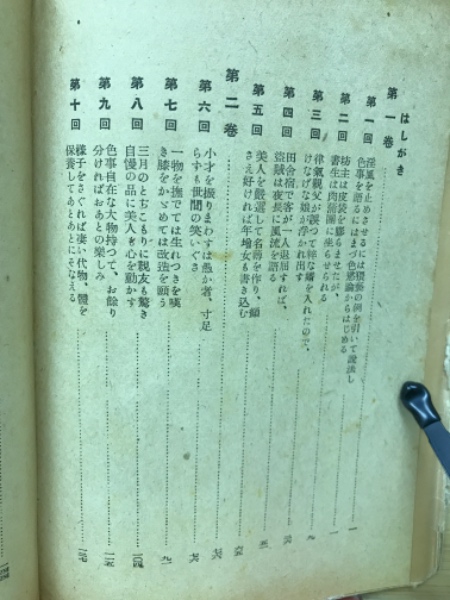 はしがき
第一卷
第一回
淫風を止めさせるには積極の例を引いて說法し
色事を語るにはまづ色慾論からはじめる
第二回
坊主は皮袋を膨らませたが、
書生は肉蒲團に座らせられる
第三回
律氣親父が誤つて粋な婿を入れたので、
けなげな娘が浮かれ出す
第四回
田舍宿で客が一人退屈すれば、
盜賊は夜長に風流を語る
第五回
美人を嚴選して名簿を作り、顏
さえ好ければ年增女も書き込む
第二卷
第六回
小才を振りまわすは愚か者、寸足
らずも世間の笑いぐさ
第七回
一物を撫でては生れつきを嘆
き膝をかゞめては改造を願う
第八回
三月のとぢこもりに親友も驚き
自慢の品に美人も心を動かす
第九回
色事自在な大物持つて、お餘り
分ければおあとの樂しみ
第十回
樣子をさぐれば凄い代物、體を
保養してあとあとにそなえる